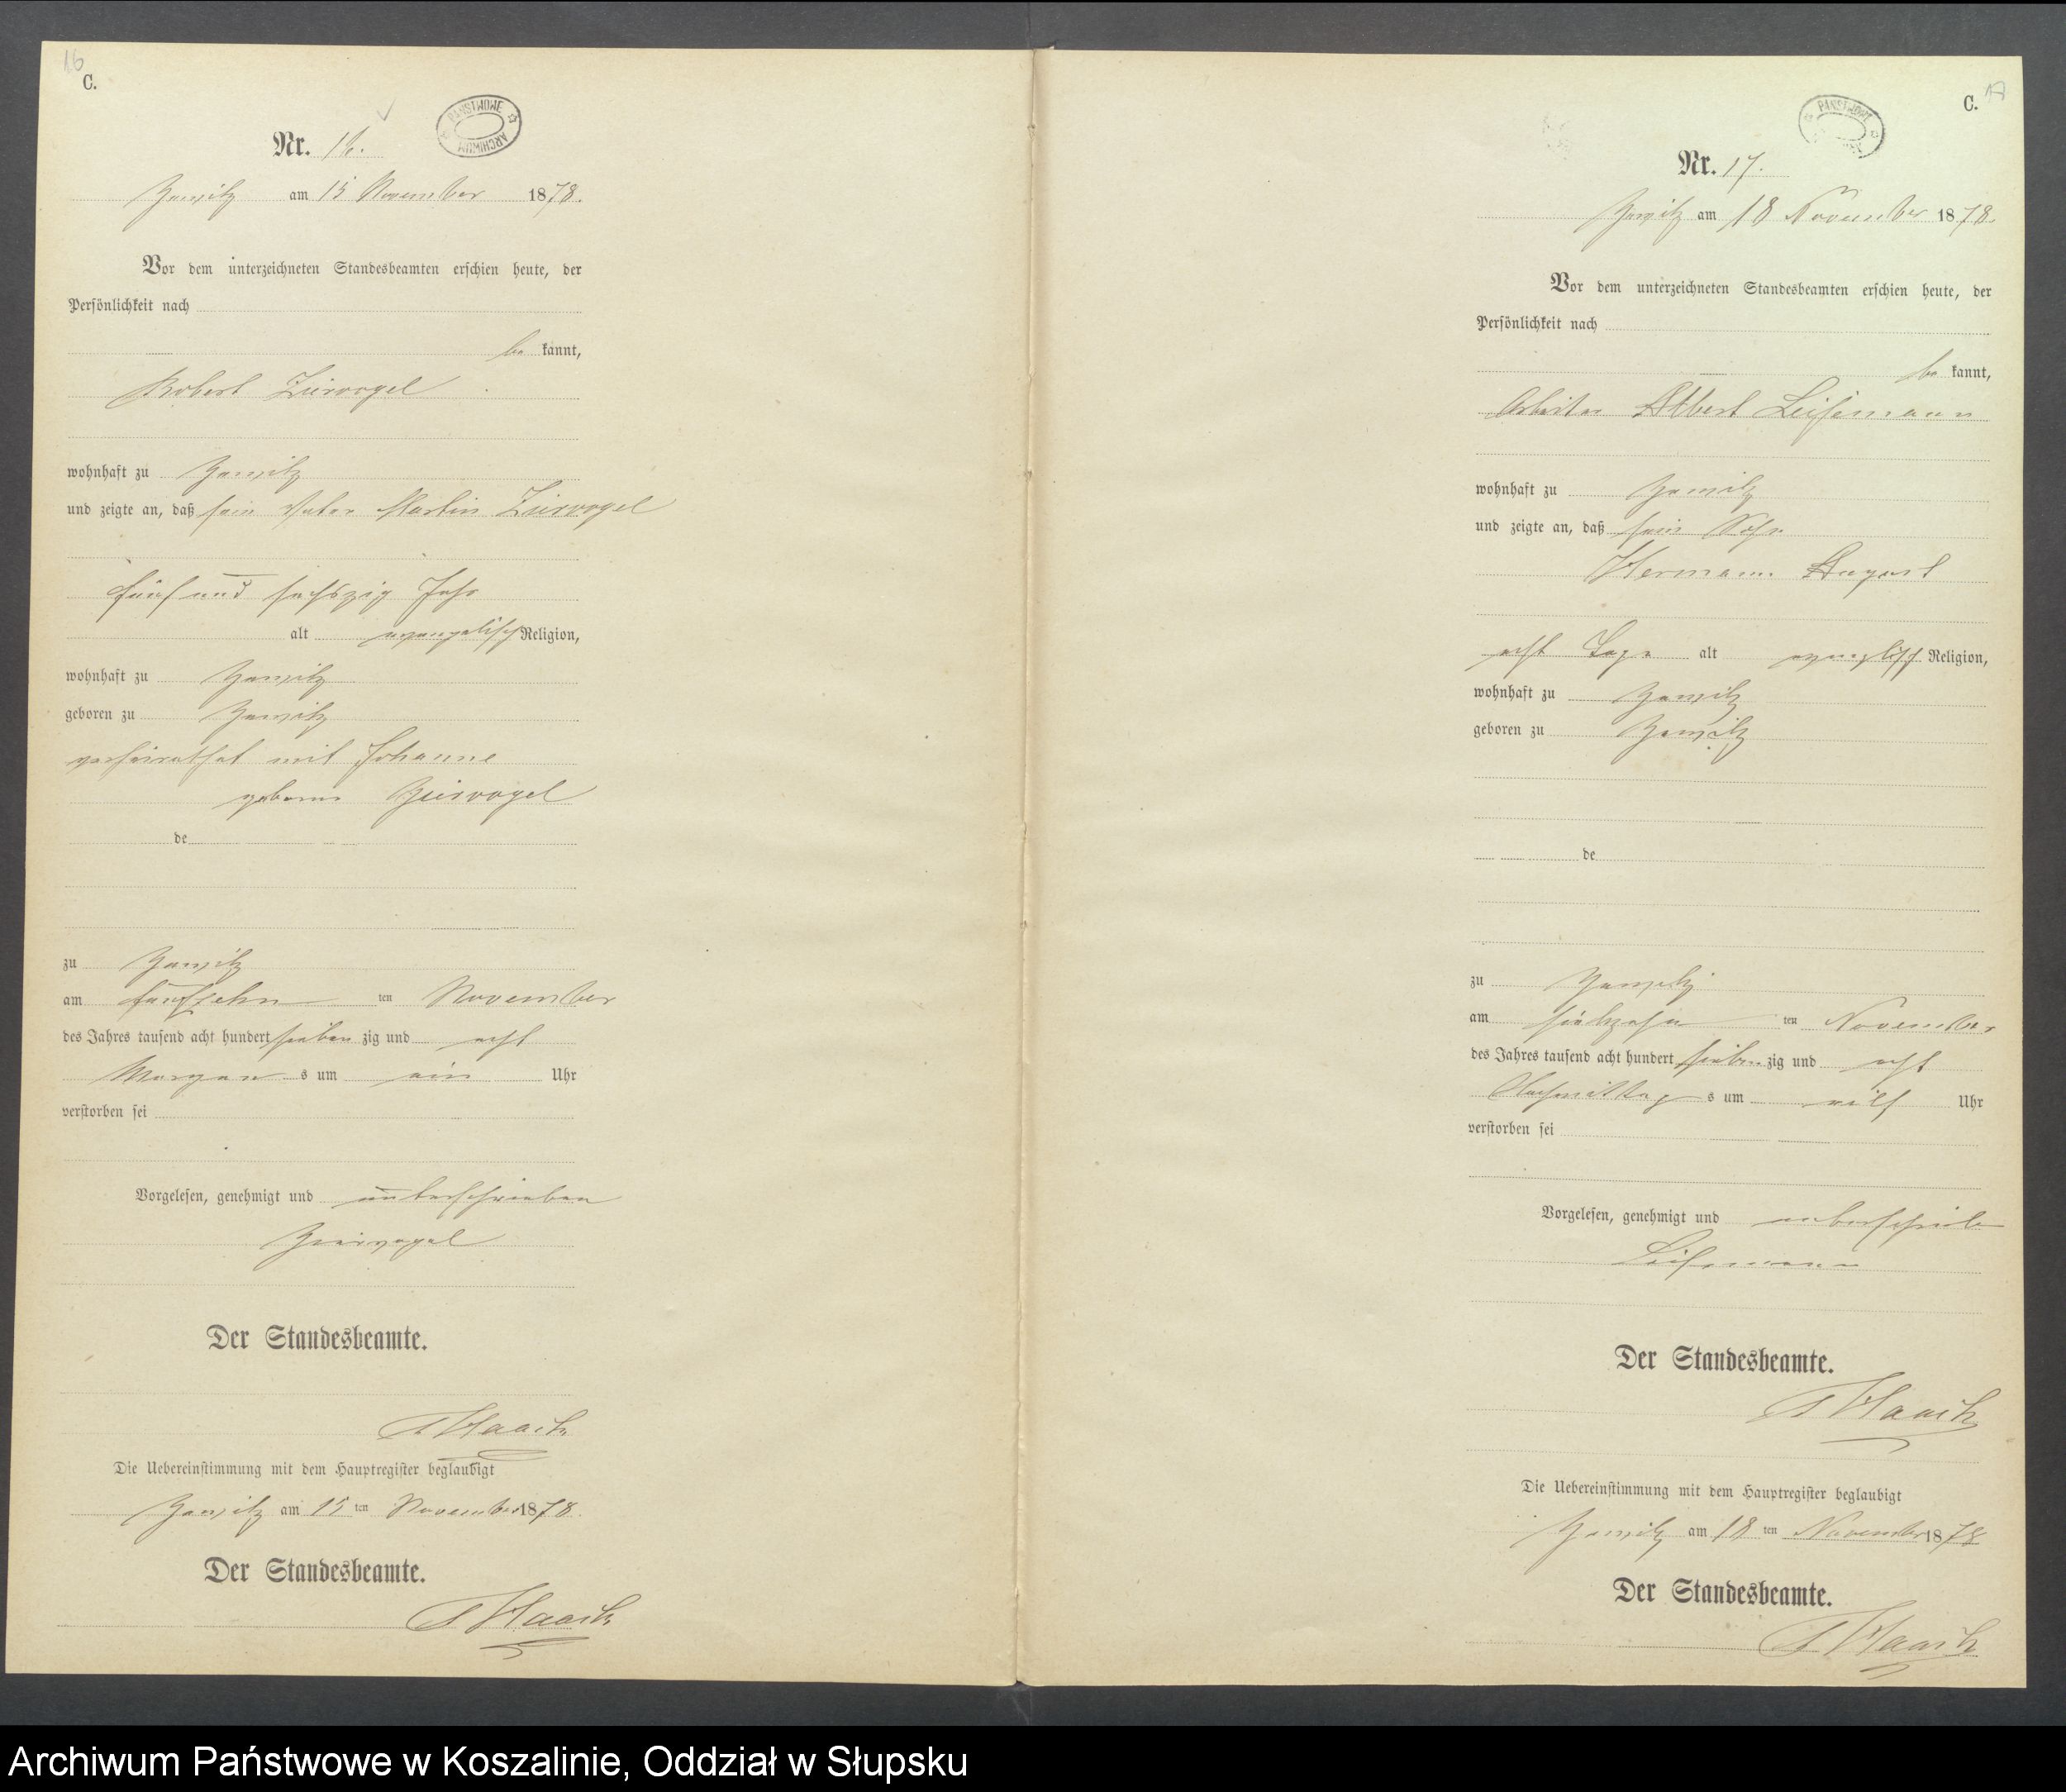 16
C.
PAŃSTWOWE ARCHIWUM
Nr. 16.
am 15 November 1878.
Vor dem unterzeichneten Standesbeamten erschien heute, der
Persönlichkeit nach
be kannt,
Robert Zürvogel
wohnhaft zu
und zeigte an, daß sein Vater Martin Zürvogel
fünf und sechszig Jahr
alt evangelisch Religion,
wohnhaft zu
geboren zu
verheirathet mit Johanne
geborne
de
zu
am fünfzehn ten November
des Jahres tausend acht hundert sieben zig und acht
Morgen s um ein Uhr
verstorben sei
Vorgelesen, genehmigt und unterschrieben
Der Standesbeamte.
Haack
Die Uebereinstimmung mit dem Hauptregister beglaubigt
am 15 ten November 1878.
Der Standesbeamte.
Haack
17
C.
PAŃSTWOWE
Nr. 17.
am 18 November 1878.
Vor dem unterzeichneten Standesbeamten erschien heute, der
Persönlichkeit nach
be kannt,
Arbeiter Albert Leisemann
wohnhaft zu
und zeigte an, daß sein Sohn
Hermann August
acht Tage alt Religion,
wohnhaft zu
geboren zu
de
zu
am siebzehn ten November
des Jahres tausend acht hundert sieben zig und acht
Nachmittag s um Uhr
verstorben sei
Vorgelesen, genehmigt und
Leisemann
Der Standesbeamte.
Haack
Die Uebereinstimmung mit dem Hauptregister beglaubigt
am 18 ten November 1878
Der Standesbeamte.
Haack
Archiwum Państwowe w Koszalinie, Oddział w Słupsku